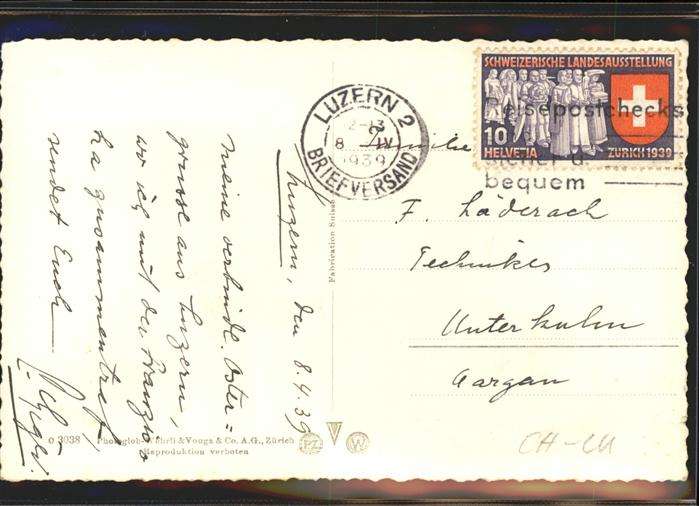 Luzern, den 8.4.39
meine verbindl. Oster=
grüsse aus Luzern,
wo ich mit der
zusammentraf,
sendet Euch
O 3038 Photoglob-Wehrli & Vouga & Co. A.G., Zürich
Reproduktion verboten
PZ W
Fabrication Suisse
LUZERN 2
12-13
8. IV
1939
BRIEFVERSAND
SCHWEIZERISCHE LANDESAUSSTELLUNG
10
HELVETIA ZÜRICH 1939
Reisepostchecks
sicher u.
bequem
Familie
F. Läderach
Techniker
Unterkulm
Aargau
CH-LU